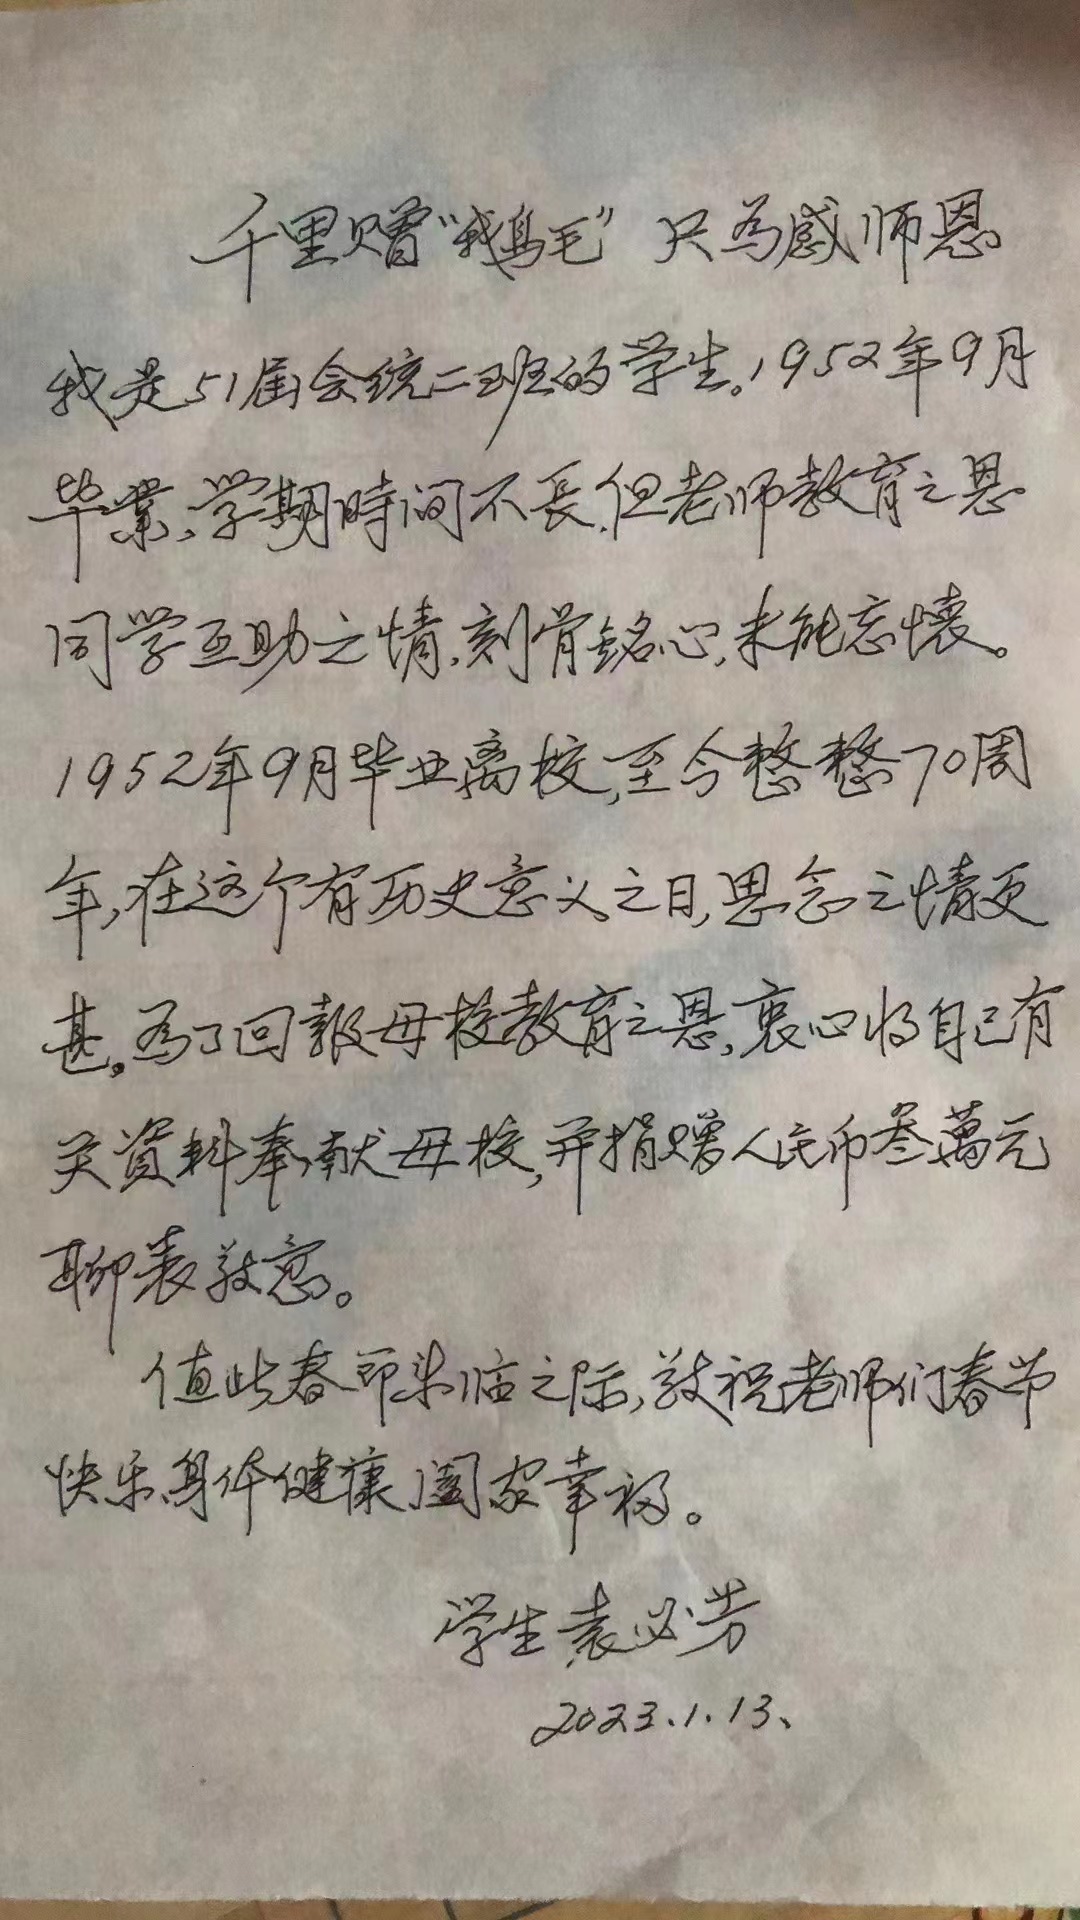 千里赠“鹅毛” 只為感师恩
我是51届会统二班的学生。1952年9月
毕業,学期時间不長,但老师教育之恩
同学互助之情,刻骨铭心,未能忘懷。
1952年9月毕业离校,至今整整70周
年,在这个有历史意义之日,思念之情更
甚。為了回報母校教育之恩,衷心将自己有
关資料奉献母校,并捐赠人民币叁萬元
聊表敬意。
值此春节来临之际,敬祝老师们春节
快乐身体健康阖家幸福。
学生袁必芳
2023.1.13、